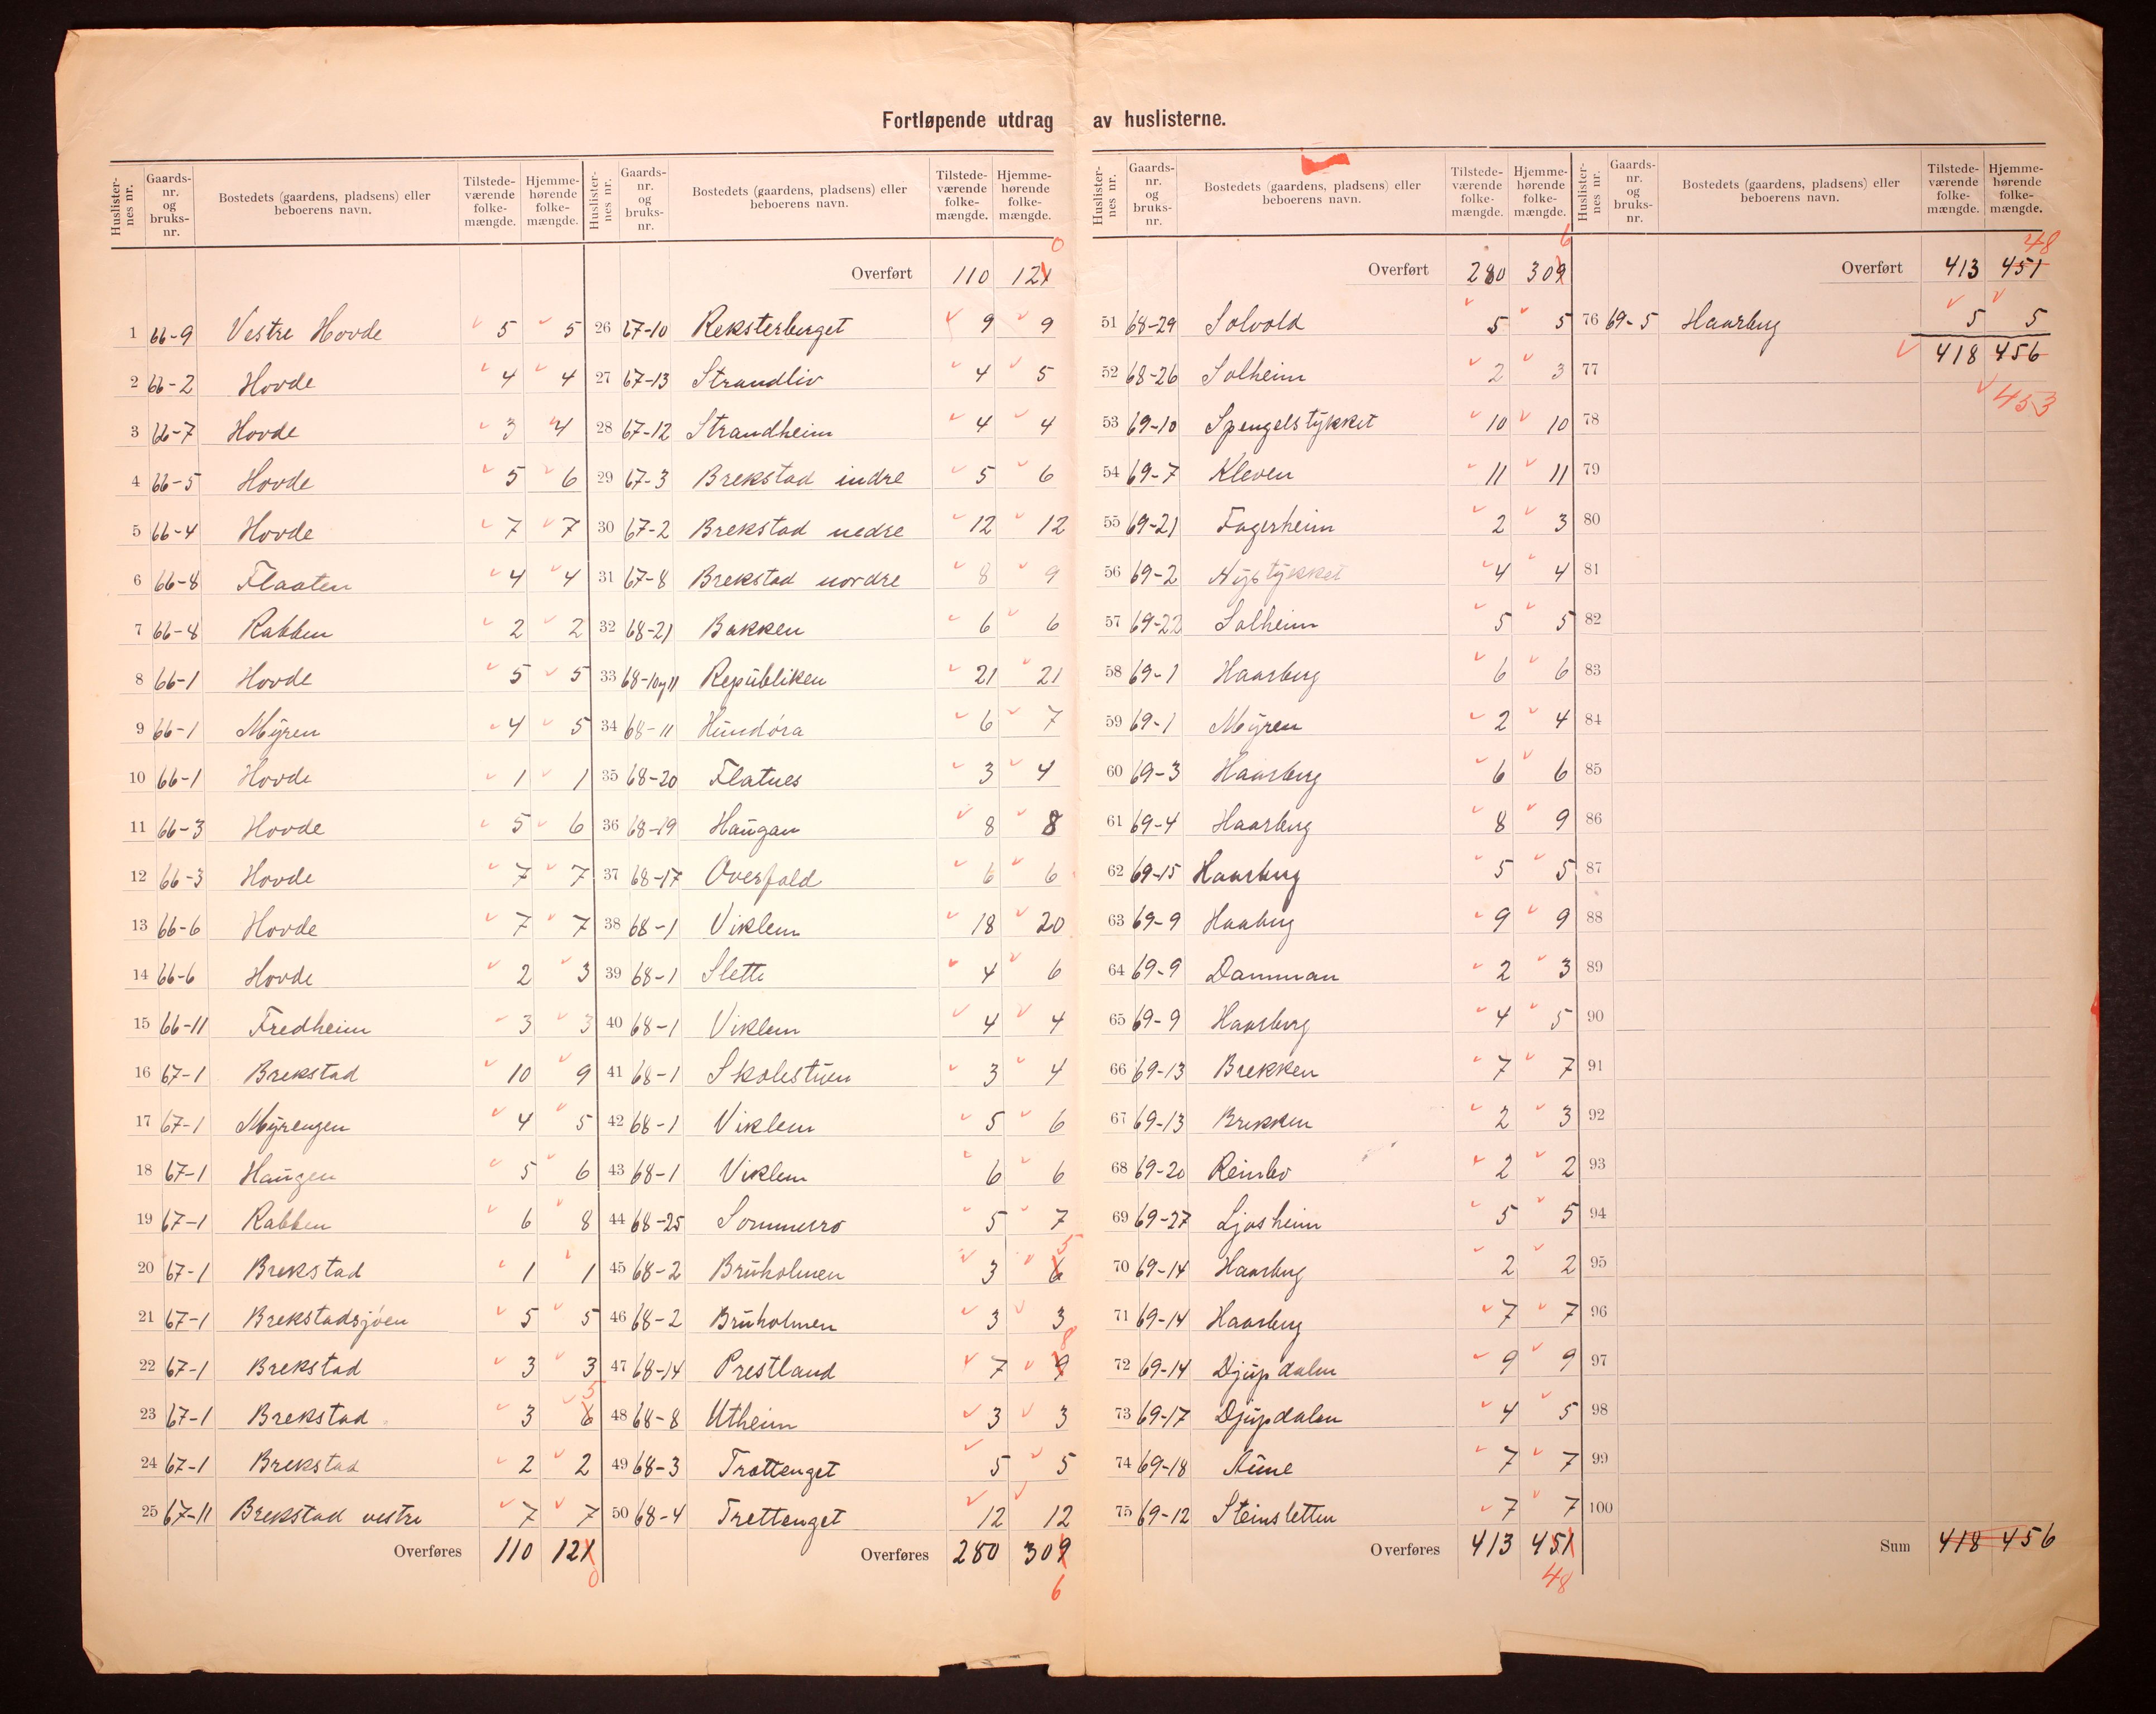 Fortløpende utdrag av huslisterne.
Huslisternes nr. Gaards-nr. og bruks-nr. Bostedets (gaardens, pladsens) eller beboerens navn. Tilstedeværende folkemængde. Hjemmehørende folkemængde.
1 66-9 Vestre Hovde 5 5
2 66-2 Hovde 4 4
3 66-7 Hovde 3 4
4 66-5 Hovde 5 6
5 66-4 Hovde 7 7
6 66-8 Flaaten 4 4
7 66-8 Rabben 2 2
8 66-1 Hovde 5 5
9 66-1 Myren 4 5
10 66-1 Hovde 1 1
11 66-3 Hovde 5 6
12 66-3 Hovde 7 7
13 66-6 Hovde 7 7
14 66-6 Hovde 2 3
15 66-11 Fredheim 3 3
16 67-1 Brekstad 10 9
17 67-1 Myrengen 4 5
18 67-1 Haugen 5 6
19 67-1 Rabben 6 8
20 67-1 Brekstad 1 1
21 67-1 Brekstadsjøen 5 5
22 67-1 Brekstad 3 3
23 67-1 Brekstad 3 6 5
24 67-1 Brekstad 2 2
25 67-11 Brekstad vestre 7 7
Overføres 110 121 0
Huslisternes nr. Gaards-nr. og bruks-nr. Bostedets (gaardens, pladsens) eller beboerens navn. Tilstedeværende folkemængde. Hjemmehørende folkemængde.
Overført 110 121 0
26 67-10 Reksterberget 9 9
27 67-13 Strandliv 4 5
28 67-12 Strandheim 4 4
29 67-3 Brekstad indre 5 6
30 67-2 Brekstad nedre 12 12
31 67-8 Brekstad nordre 8 9
32 68-21 Bakken 6 6
33 68-10 og 11 Republiken 21 21
34 68-11 Hundøra 6 7
35 68-20 Flatnes 3 4
36 68-19 Haugan 8 8
37 68-17 Overfald 6 6
38 68-1 Viklem 18 20
39 68-1 Slette 4 6
40 68-1 Viklem 4 4
41 68-1 Skolestuen 3 4
42 68-1 Viklem 5 6
43 68-1 Viklem 6 6
44 68-25 Sommerro 5 7
45 68-2 Bruholmen 3 6 5
46 68-2 Bruholmen 3 3
47 68-14 Prestland 7 9 8
48 68-8 Utheim 3 3
49 68-3 Trottenget 5 5
50 68-4 Trettenget 12 12
Overføres 280 309 6
Huslisternes nr. Gaards-nr. og bruks-nr. Bostedets (gaardens, pladsens) eller beboerens navn. Tilstedeværende folkemængde. Hjemmehørende folkemængde.
Overført 280 309 6
51 68-29 Solvold 5 5
52 68-26 Solheim 2 3
53 69-10 Spengelstykket 10 10
54 69-7 Kleven 11 11
55 69-21 Fagerheim 2 3
56 69-2 Nystykket 4 4
57 69-22 Solheim 5 5
58 69-1 Haarberg 6 6
59 69-1 Myren 2 4
60 69-3 Haarberg 6 6
61 69-4 Haarberg 8 9
62 69-15 Haarberg 5 5
63 69-9 Haaberg 9 9
64 69-9 Damman 2 3
65 69-9 Haarberg 4 5
66 69-13 Brekken 7 7
67 69-13 Brekken 2 3
68 69-20 Reinbo 2 2
69 69-27 Ljosheim 5 5
70 69-14 Haarberg 2 2
71 69-14 Haarberg 7 7
72 69-14 Djupdalen 9 9
73 69-17 Djupdalen 4 5
74 69-18 Aune 7 7
75 69-12 Steinsletten 7 7
Overføres 413 451 48
Huslisternes nr. Gaards-nr. og bruks-nr. Bostedets (gaardens, pladsens) eller beboerens navn. Tilstedeværende folkemængde. Hjemmehørende folkemængde.
48
Overført 413 451
76 69-5 Haarberg 5 5
418 456
77
453
78
79
80
81
82
83
84
85
86
87
88
89
90
91
92
93
94
95
96
97
98
99
100
Sum 418 456